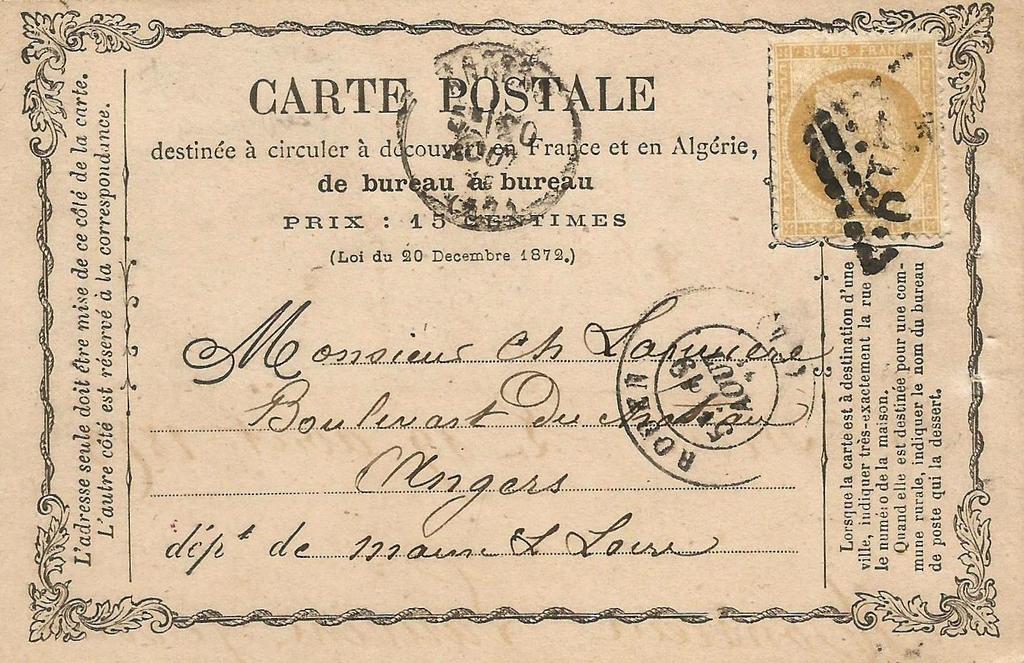 L'adresse seule doit être mise de ce côté de la carte.
L'autre côté est réservé à la correspondance.
CARTE POSTALE
destinée à circuler à découvert en France et en Algérie,
de bureau à bureau
PRIX : 15 CENTIMES
(Loi du 20 Decembre 1872.)
REPUB FRANC
Monsieur Ch
Boulevart Du
Angers
dépt de maine & Loire
ROUEN
5
19
AOUT
Lorsque la carte est à destination d'une
ville, indiquer très-exactement la rue
le numéro de la maison.
Quand elle est destinée pour une com-
mune rurale, indiquer le nom du bureau
de poste qui la dessert.